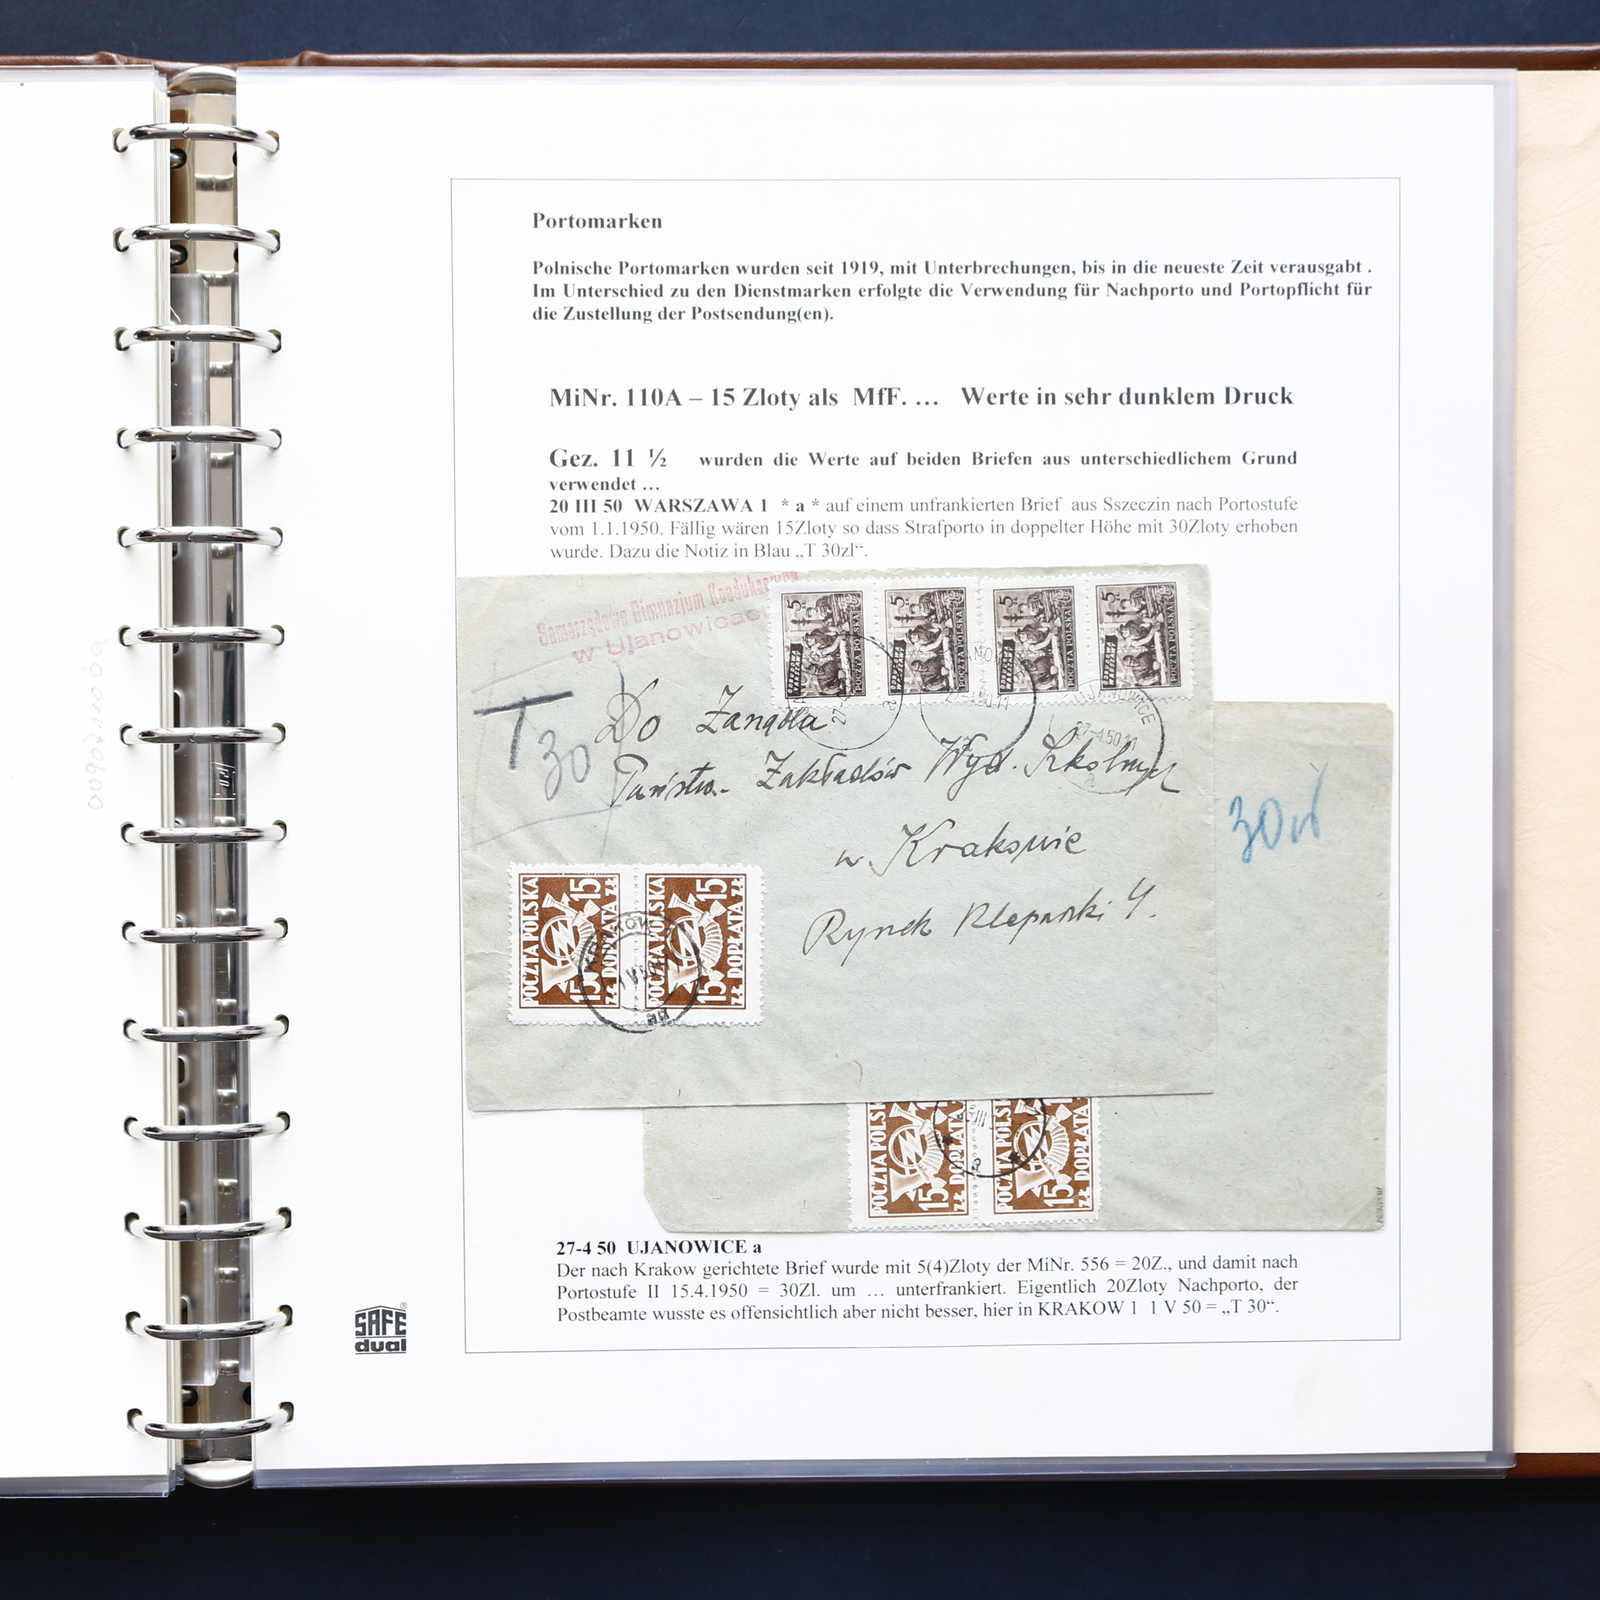 Portomarken
Polnische Portomarken wurden seit 1919, mit Unterbrechungen, bis in die neueste Zeit verausgabt .
Im Unterschied zu den Dienstmarken erfolgte die Verwendung für Nachporto und Portopflicht für
die Zustellung der Postsendung(en).
MiNr. 110A – 15 Zloty als MfF. … Werte in sehr dunklem Druck
Gez. 11 ½ wurden die Werte auf beiden Briefen aus unterschiedlichem Grund
verwendet …
20 III 50 WARSZAWA 1 * a * auf einem unfrankierten Brief aus Sszeczin nach Portostufe
vom 1.1.1950. Fällig wären 15Zloty so dass Strafporto in doppelter Höhe mit 30Zloty erhoben
wurde. Dazu die Notiz in Blau „T 30zl“.
Samorządowe Gimnazjum
w Ujanowicach
5 POCZTA POLSKA
5 POCZTA POLSKA
5 POCZTA POLSKA
5 POCZTA POLSKA
UJANOWICE
27-4.50.11
T 30
Do Zarządu
Państw. Zakładów Wyd. Szkolnych
w Krakowie
Rynek Kleparski 4.
30 zł
POCZTA POLSKA 15 15 ZŁ DOPŁATA ZŁ
POCZTA POLSKA 15 15 ZŁ DOPŁATA ZŁ
KRAKÓW
1 V 50
POCZTA POLSKA 15 ZŁ DOPŁATA
POCZTA POLSKA 15 ZŁ DOPŁATA
27-4 50 UJANOWICE a
Der nach Krakow gerichtete Brief wurde mit 5(4)Zloty der MiNr. 556 = 20Z., und damit nach
Portostufe II 15.4.1950 = 30Zl. um … unterfrankiert. Eigentlich 20Zloty Nachporto, der
Postbeamte wusste es offensichtlich aber nicht besser, hier in KRAKOW 1 1 V 50 = „T 30“.
SAFE
dual